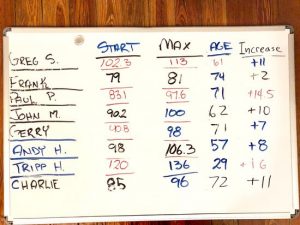 START MAX AGE Increase
GREG S. 102.3 113 61 +11
FRANK 79 81 74 +2
PAUL P. 83.1 97.6 71 +14.5
JOHN M. 90.2 100 62 +10
GERRY 90.8 98 71 +7
ANDY H. 98 106.3 57 +8
TRIPP H. 120 136 29 +16
CHARLIE 85 96 72 +11